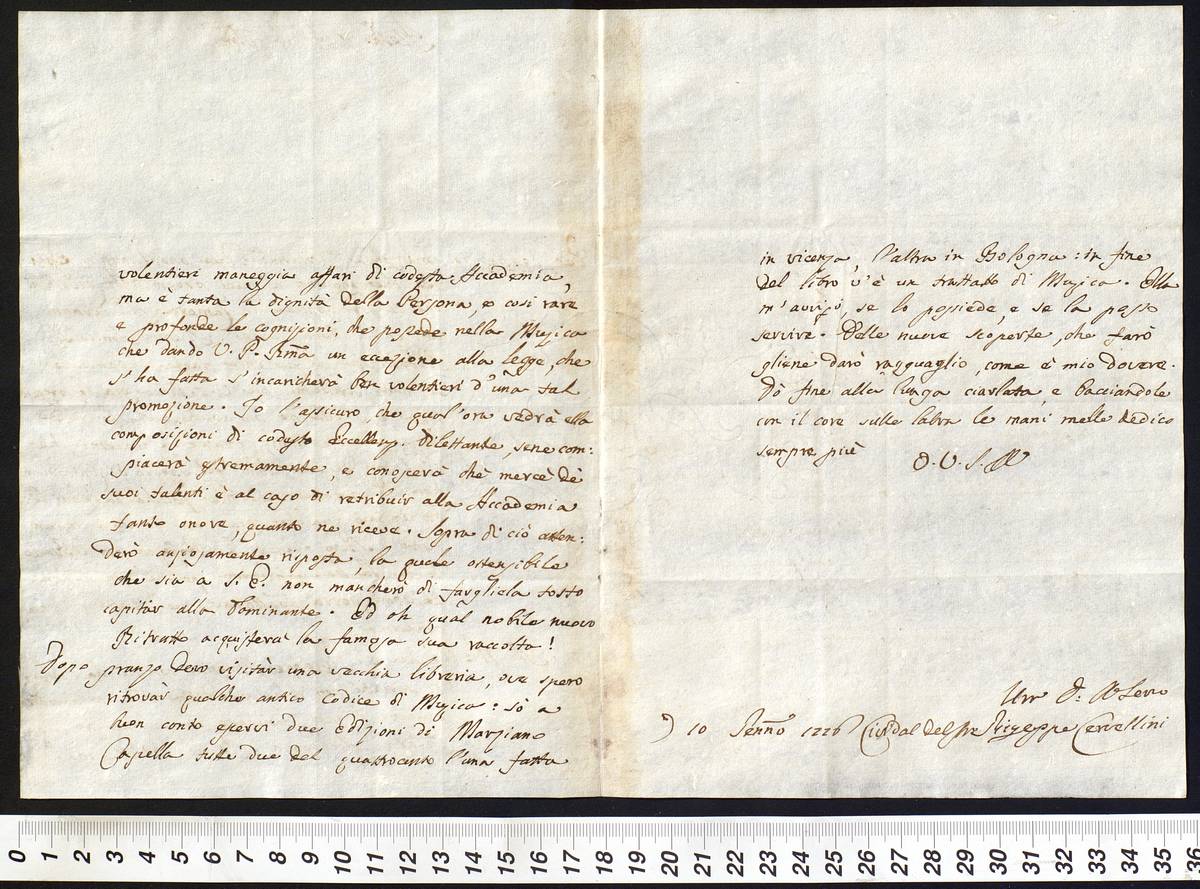 volentieri maneggia affari di codesta Accademia,
ma e tanta la dignità della Persona, e così rare
e profonde le cognisioni, che posede nella Musica
che dando V. P. Rma un ecesione alla legge, che
s'ha fatta s'incaricherà ben volentieri d'una tal
promozione. Io l'assicuro che qual'ora vedrà ella
composisioni di codesto Eccellenmo. dilettante, sene com:
piacerà estremamente, e conoscerà chè mercè de
suoi talenti è al caso di retribuir alla Accademia
tanto onore, quanto ne riceve. Sopra di ciò atten:
derò ansiosamente risposta, la quale ostensibile
che sia a S. E. non mancherò di fargliela tosto
capitar alla Dominante. Ed oh qual nobile nuovo
Ritratto acquisterà la famosa sua raccolta!
Dopo pranzo devo visitar una vecchia libraria, ove spero
ritrovar qualche antico codice di Musica: sò a
buon conto esservi due Edizioni di Marziano
Capella tutte due del quattrocento l'una fatta
in vicenza, l'altra in Bologna: in fine
del libro v'è un trattato di Musica. Ella
m'avvisi, se lo possiede, e se la posso
servire. Delle nuove scoperte, che farò
gliene darò ragguaglio, come è mio dovere.
Dò fine alla lunga ciarlata, e bacciandole
con il core sulle labra le mani melle dedico
sempre più D. V. S. M
Umo D: Servo
10 Genno 1776 Cividal del Giuseppe Cervellini
0 1 2 3 4 5 6 7 8 9 10 11 12 13 14 15 16 17 18 19 20 21 22 23 24 25 26 27 28 29 30 31 32 33 34 35 36